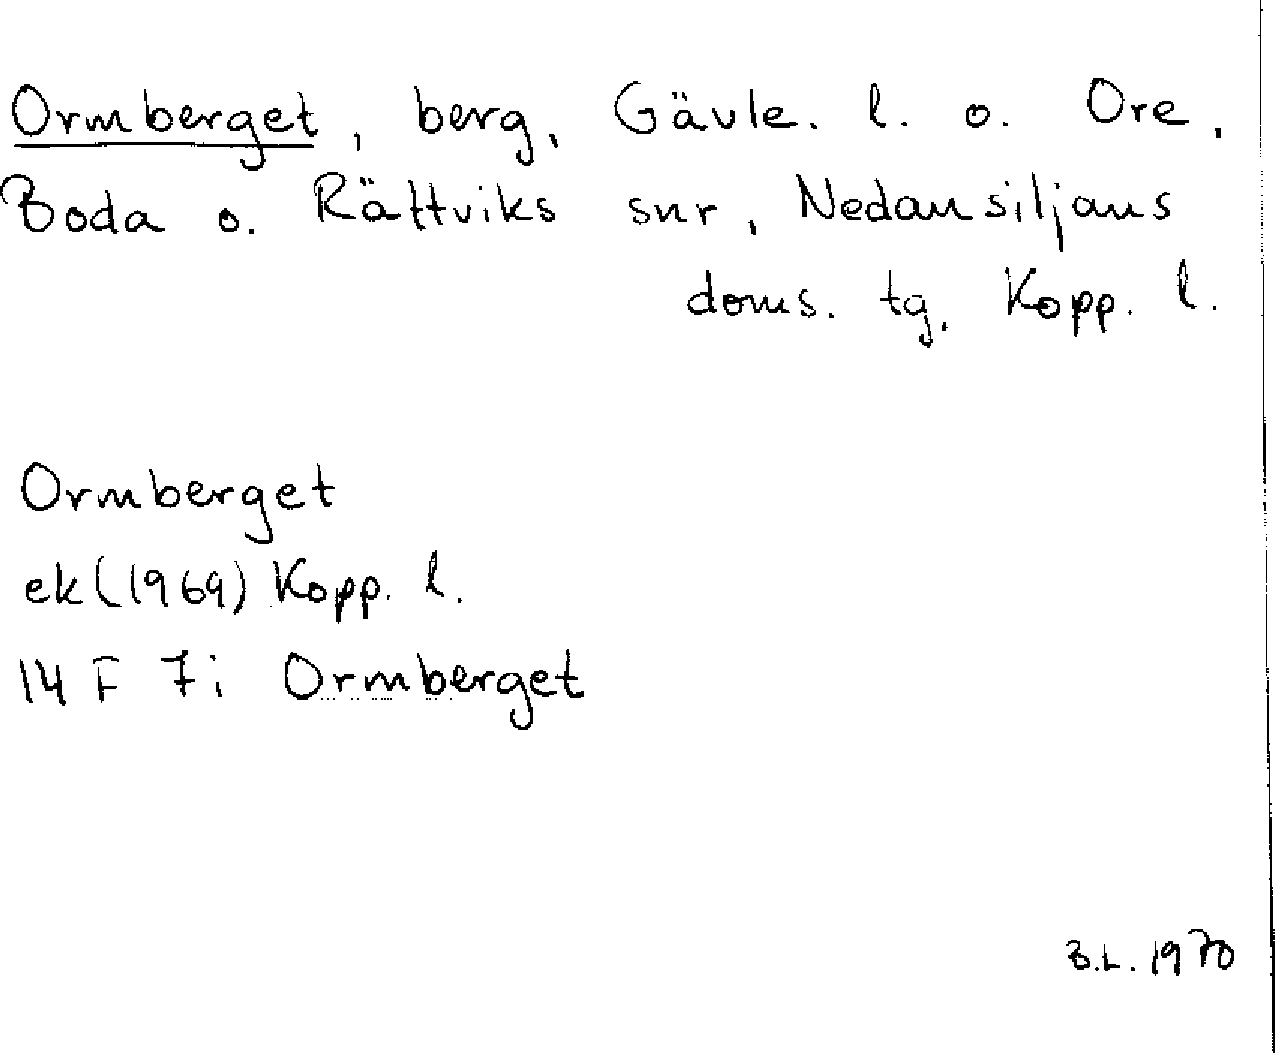 Ormberget, berg, Gävle. l. o. Ore,
Boda o. Rättviks snr, Nedansiljans
doms. tg, Kopp. l.
Ormberget
ek (1969) Kopp. l.
14 F 7i Ormberget
B.L. 1970